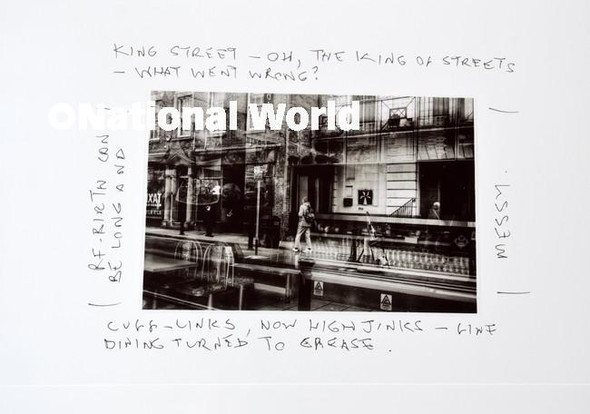 KING STREET – OH, THE KING OF STREETS
– WHAT WENT WRONG?
©National World
RE-BIRTH CAN
BE LONG AND
MESSY.
TAXI
CUFF-LINKS, NOW HIGH JINKS – FINE
DINING TURNED TO GREASE.